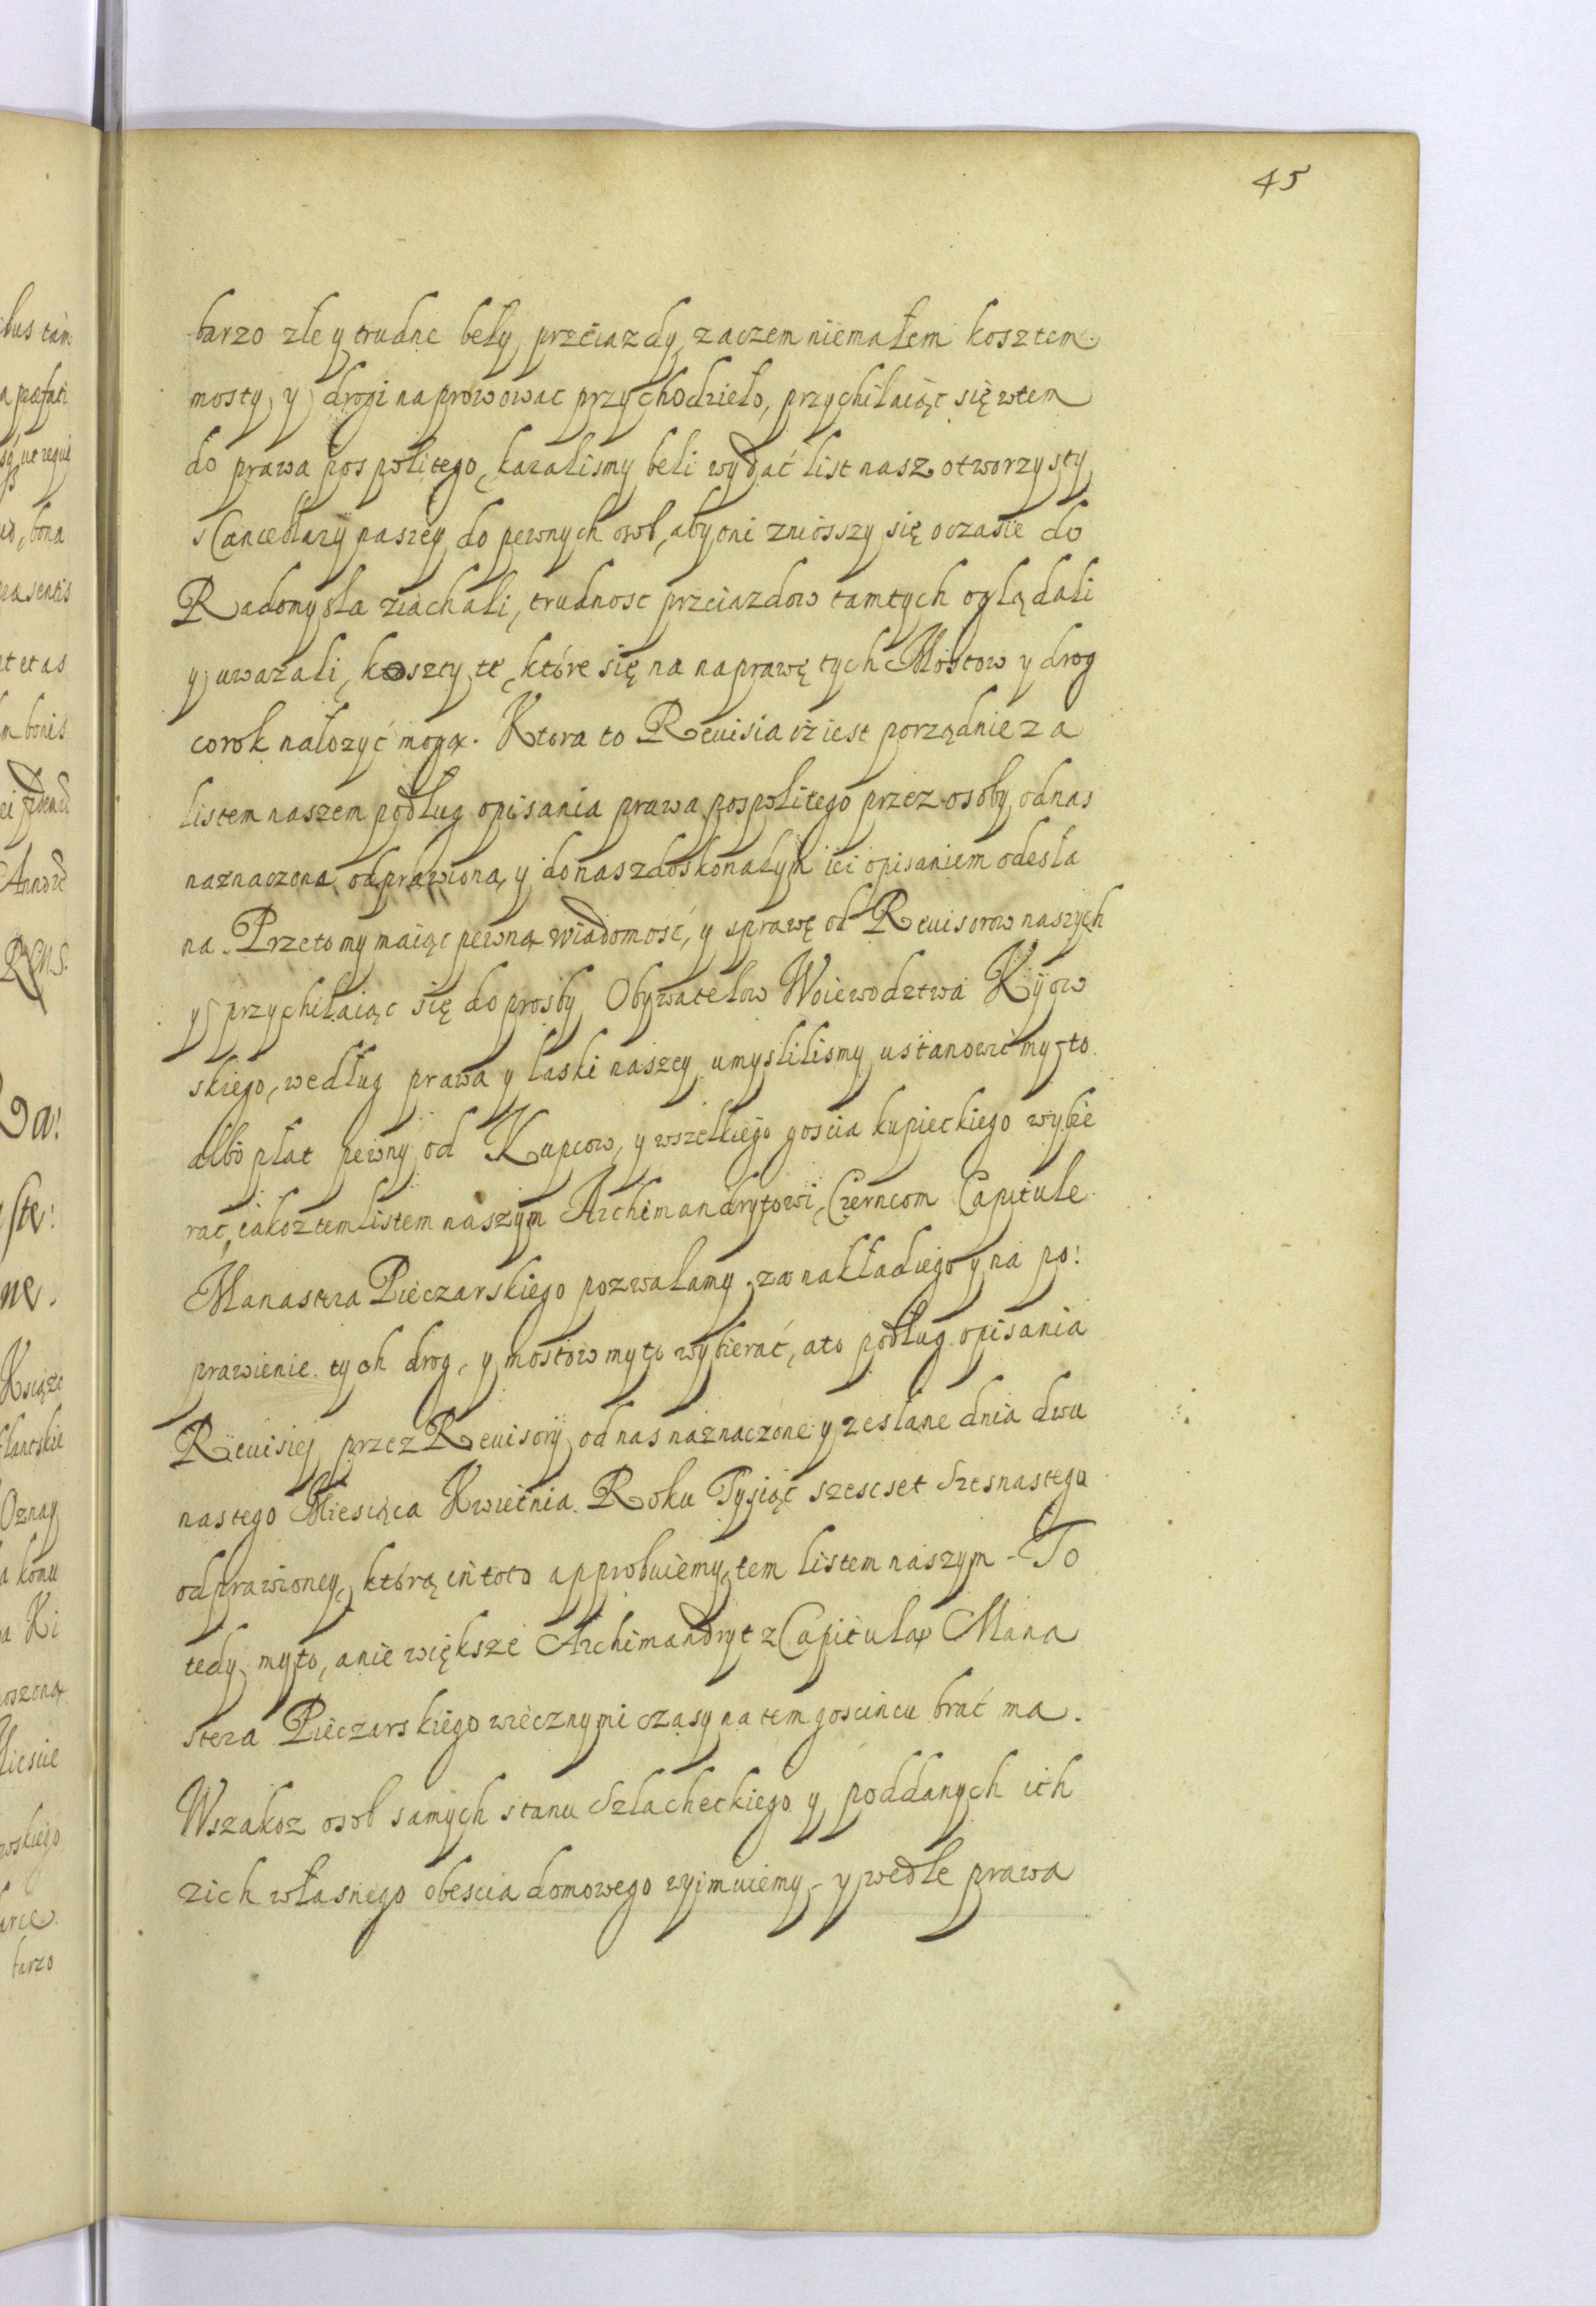 45
barzo złe y trudne beły przeiazdy, zaczem niemałem kosztem
mosty y drogi naprowowac przychodzieło, przychilaiąc się wtem
do prawa pospolitego, kazalismy beli wydać list nasz otworzysty
s Cancellaryi naszey do pewnych osob, aby oni zniosszy się o czasie do
Radomysla ziachali, trudnosc przeiazdow tamtych oglądali
y uwazali, koszty te, które się na naprawę tych Mostow y drog
corok nałozyć mogą. Ktora to Reuisia iż iest porządnie za
listem naszem podług opisania prawa pospolitego przez osoby od nas
naznaczone odprawiona, y do nas z doskonałym iei opisaniem odesła
na. Przeto my maiąc pewną wiadomość, y sprawę od Reuisorow naszych
y przychilaiąc się do prosby Obywatelow Woiewodztwa Kyiow
skiego, według prawa y laski naszey umyslilismy ustanowić myto
albo płat pewny od Kupcow, y wszelkiego goscia kupieckiego wybie
rać, iakoz tem listem naszym Archimandrytowi, Czerncom Capitule
Manastera Pieczarskiego pozwalamy za nakład iego y na po:
prawienie tych drog, y mostow myto wybierać, a to podług opisania
Reuisiej przez Reuisory od nas naznaczone y zesłane dnia dwu
nastego Miesiąca Kwietnia Roku Tysiąc szescset Szesnastego
odprawioney, którą in toto approbuiemy tem listem naszym - To
tedy myto, a nie większe Archimandryt z Capitułą Mana
stera Pieczarskiego wiecznymi czasy na tem goscincu brać ma.
Wszakoz osob samych stanu Szlacheckiego y poddanych ich
z ich własnego obescia domowego wyimuiemy - y wedle prawa